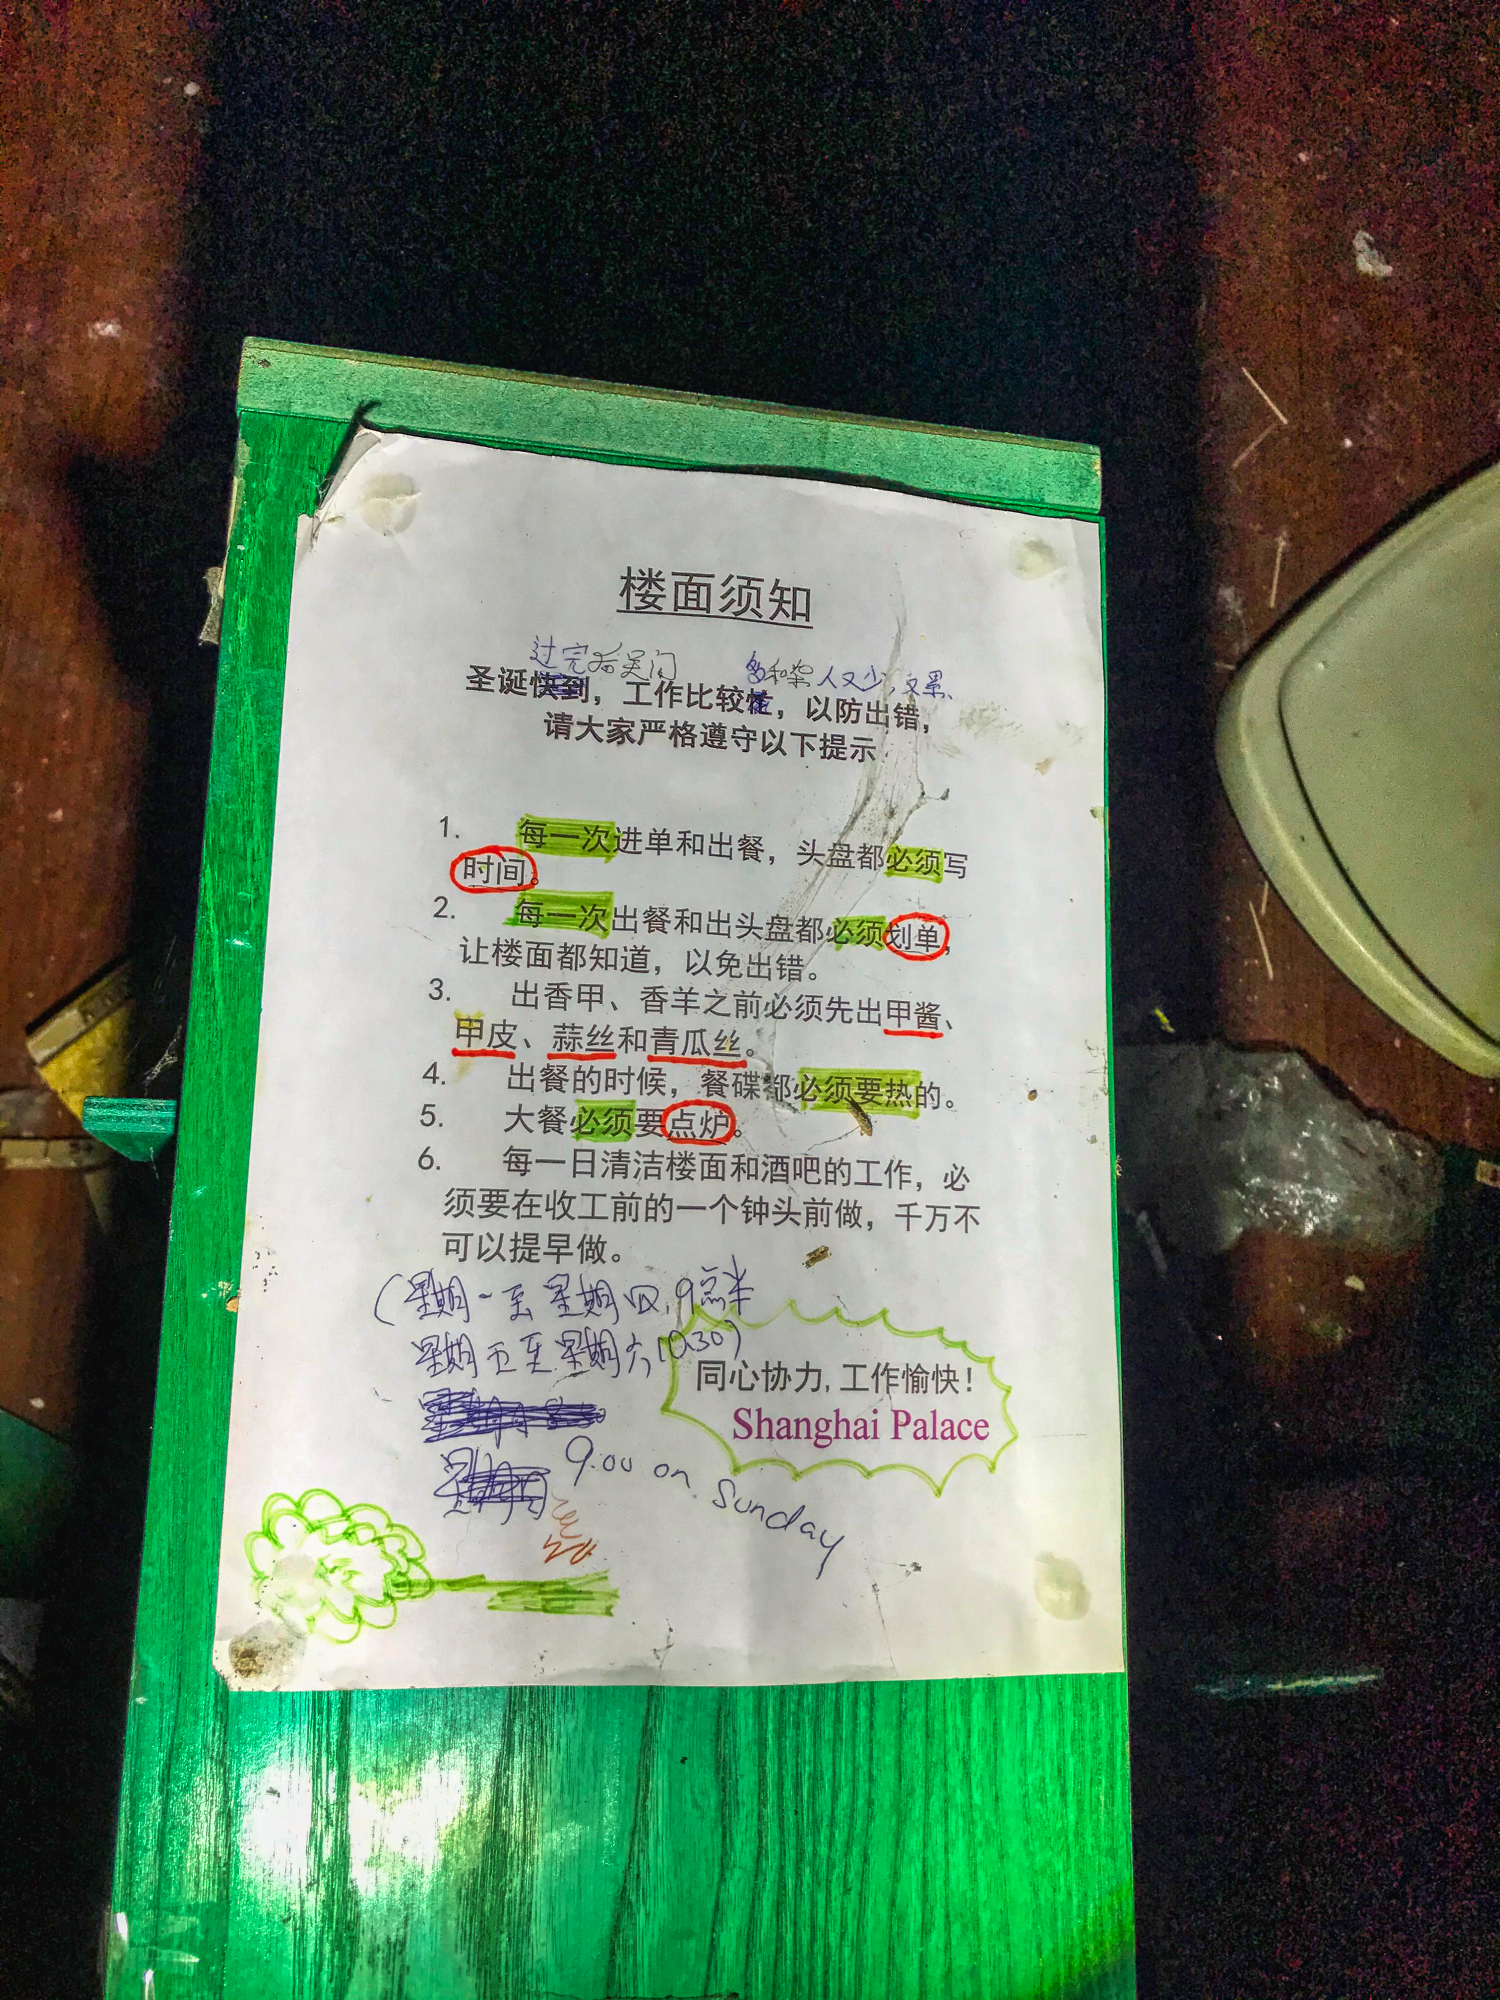 楼面须知
过完后关门 多和杂 人又少,又累
圣诞快到，工作比较忙，以防出错，
请大家严格遵守以下提示
1. 每一次进单和出餐，头盘都必须写
时间。
2. 每一次出餐和出头盘都必须划单，
让楼面都知道，以免出错。
3. 出香甲、香羊之前必须先出甲酱、
甲皮、蒜丝和青瓜丝。
4. 出餐的时候，餐碟都必须要热的。
5. 大餐必须要点炉。
6. 每一日清洁楼面和酒吧的工作，必
须要在收工前的一个钟头前做，千万不
可以提早做。
(星期一至星期四,9点半
星期五至星期六10.30)
同心协力,工作愉快!
Shanghai Palace
星期日 9.00 on Sunday